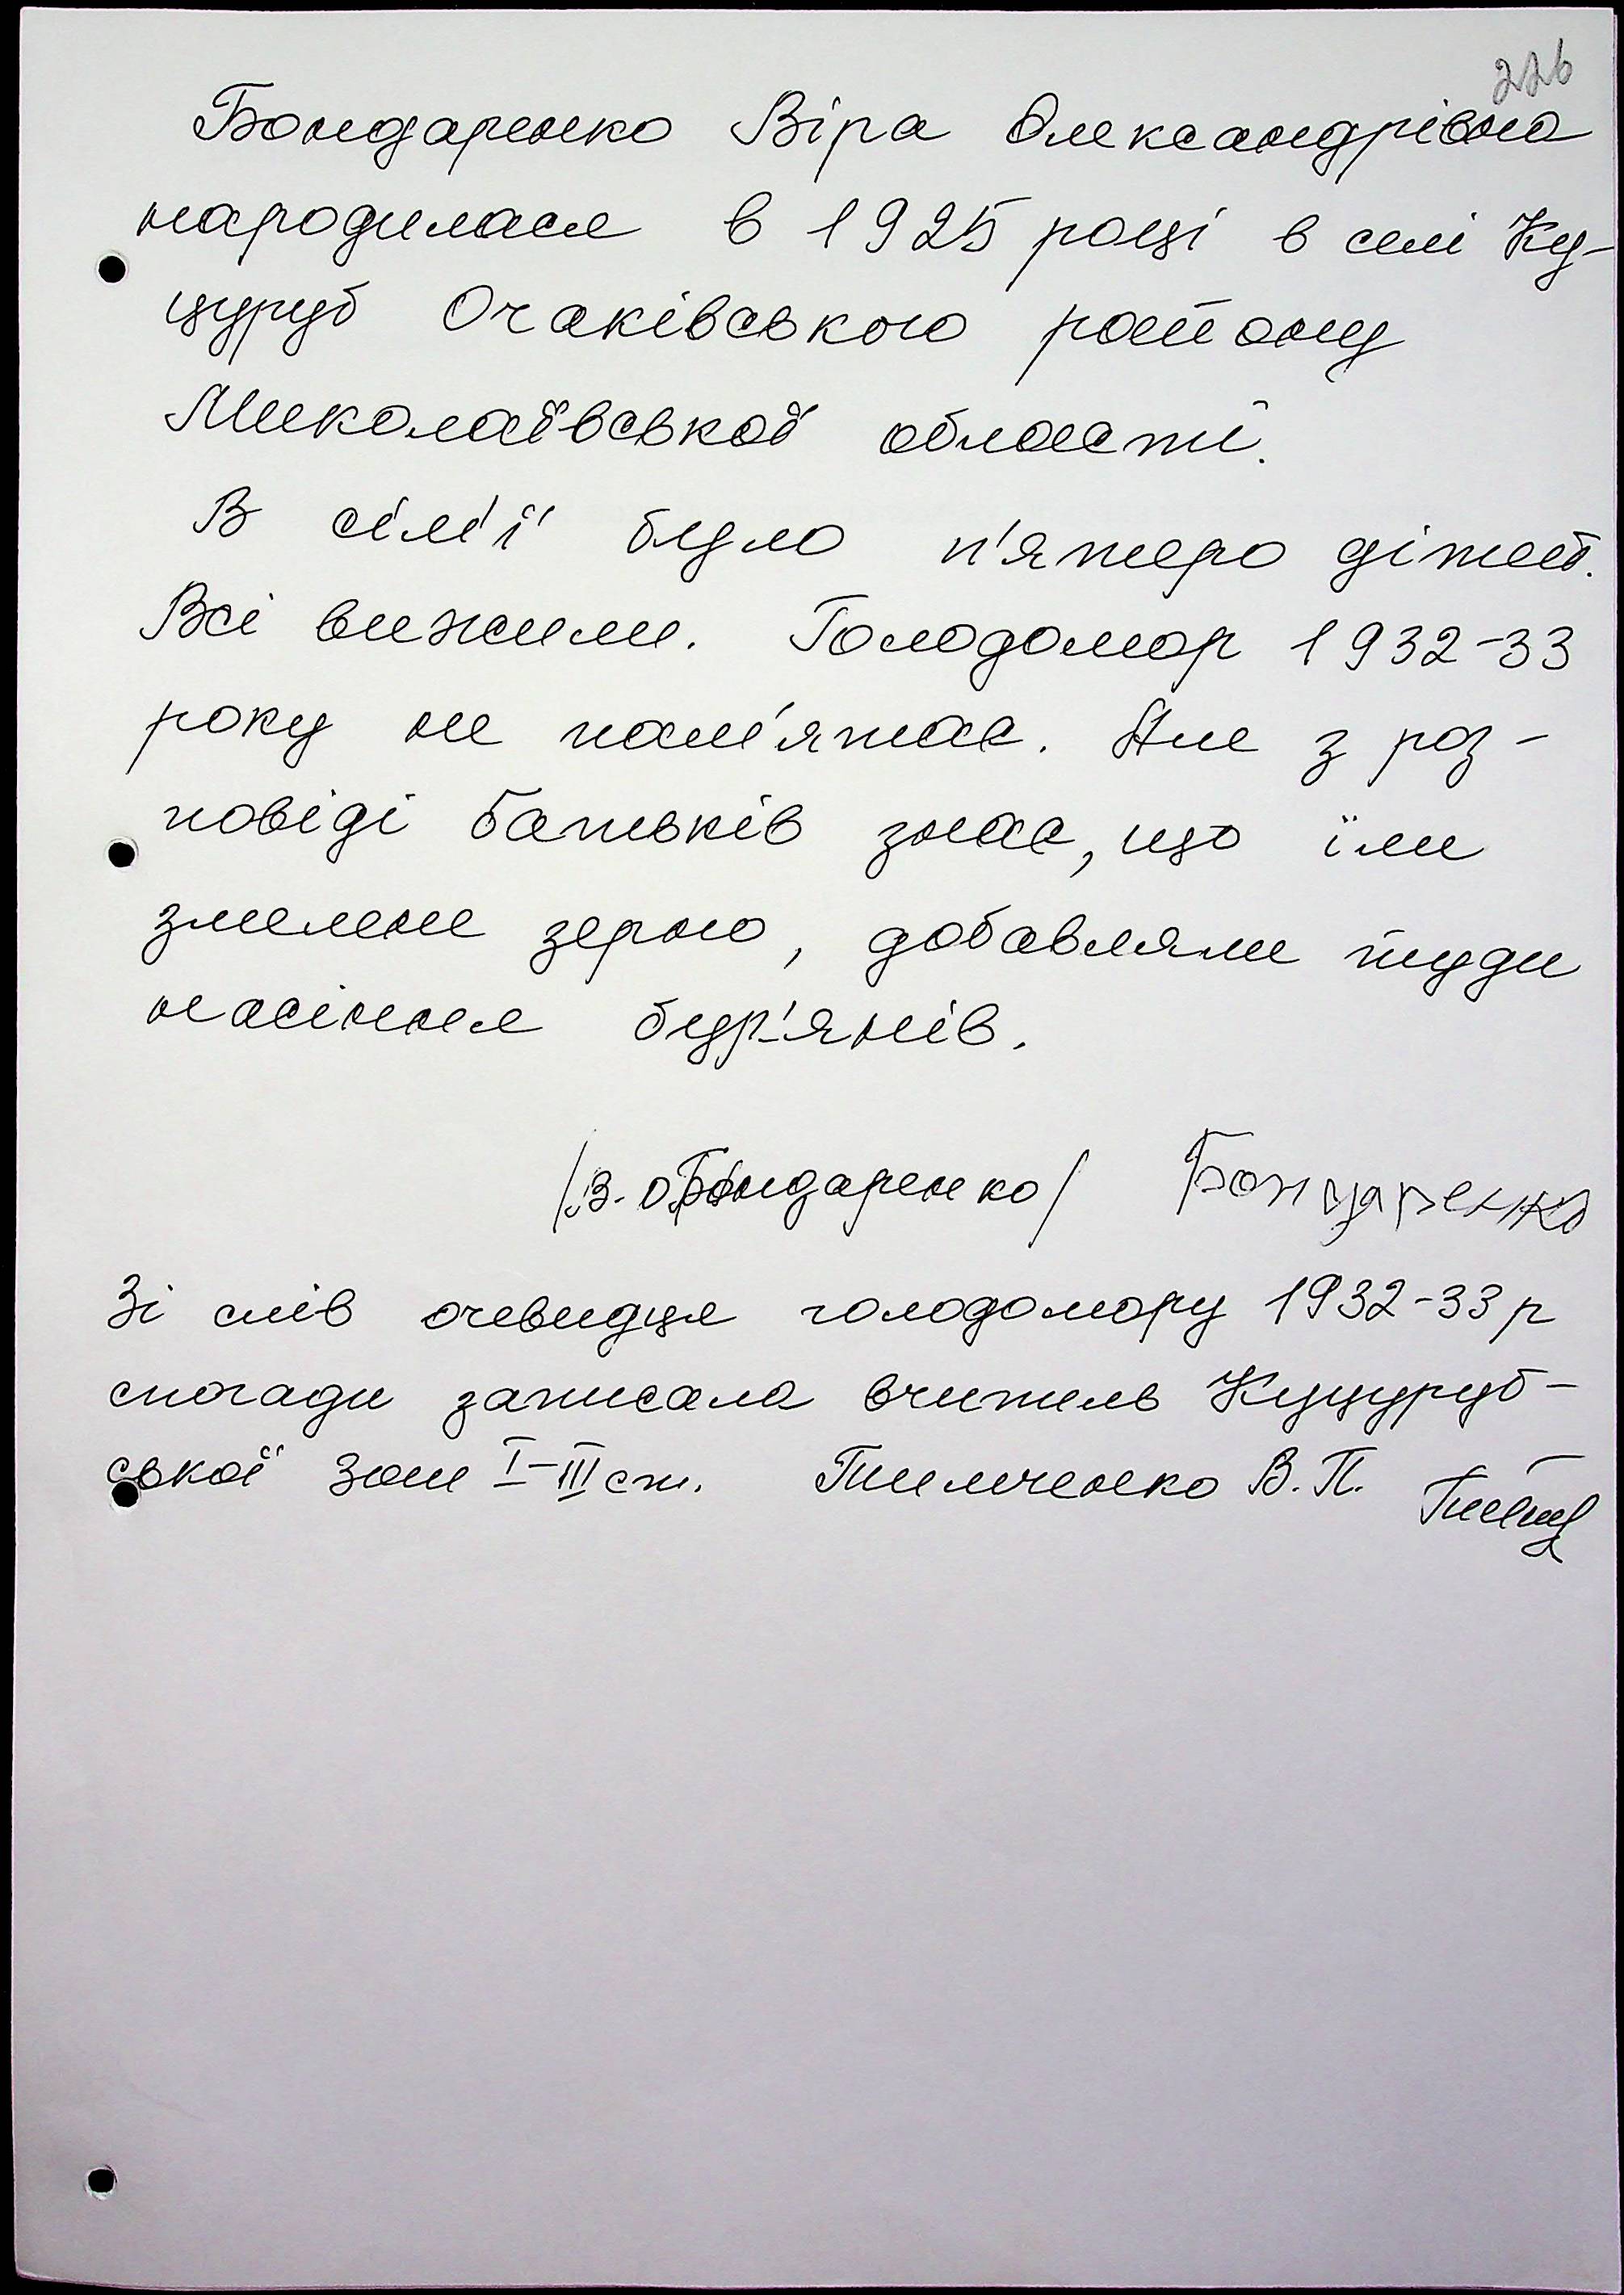 226
Бондаренко Віра Олександрівна
народилася в 1925 році в селі Ку-
цуруб Очаківського району
Миколаївської області.
В сім'ї було п'ятеро дітей.
Всі вижили. Голодомор 1932-33
року не пам'ятає. Але з роз-
повіді батьків знає, що їли
змелене зерно, добавляли туди
насіння бур'янів.
/В. О. Бондаренко/ Бондаренко
Зі слів очевидця голодомору 1932-33 р
спогади записала вчитель Куцуруб-
ської зош I-III ст. Тимченко В. П.